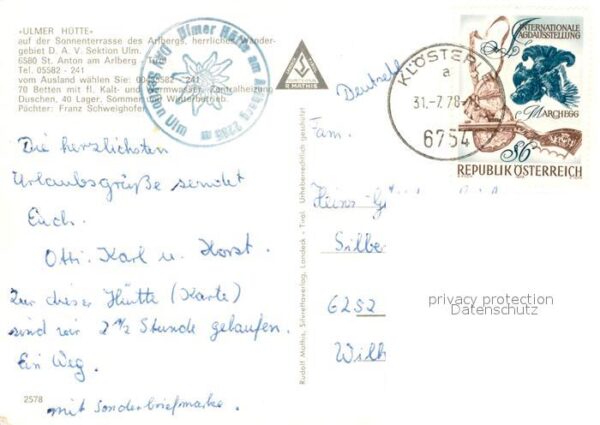 »ULMER HÜTTE«
auf der Sonnenterrasse des Arlbergs, herrliches Wander-
gebiet D. A. V. Sektion Ulm.
6580 St. Anton am Arlberg - Tirol
Tel. 05582 - 241
vom Ausland wählen Sie: 0043 5582 - 241
70 Betten mit fl. Kalt- und Warmwasser, Zentralheizung
Duschen, 40 Lager, Sommer- und Winterbetrieb.
Pächter: Franz Schweighofer
Ulmer Hütte am Arlberg 2285 m
Sektion Ulm
R. MATHIS
Rudolf Mathis, Silvrettaverlag, Landeck - Tirol Urheberrechtlich geschützt
KLÖSTERLE
a
31.-7.78-
6754
INTERNATIONALE
JAGDAUSSTELLUNG
MARCHEGG
S6
REPUBLIK ÖSTERREICH
Die herzlichsten
Urlaubsgrüße sendet
Euch.
Otti. Karl u. Horst.
Zur dieser Hütte (Karte)
sind wir 2 1/2 Stunde gelaufen.
Ein Weg.
mit Sonderbriefmarke.
2578
Fam.
Heinz
Silbe
6252
Wilh
privacy protection
Datenschutz